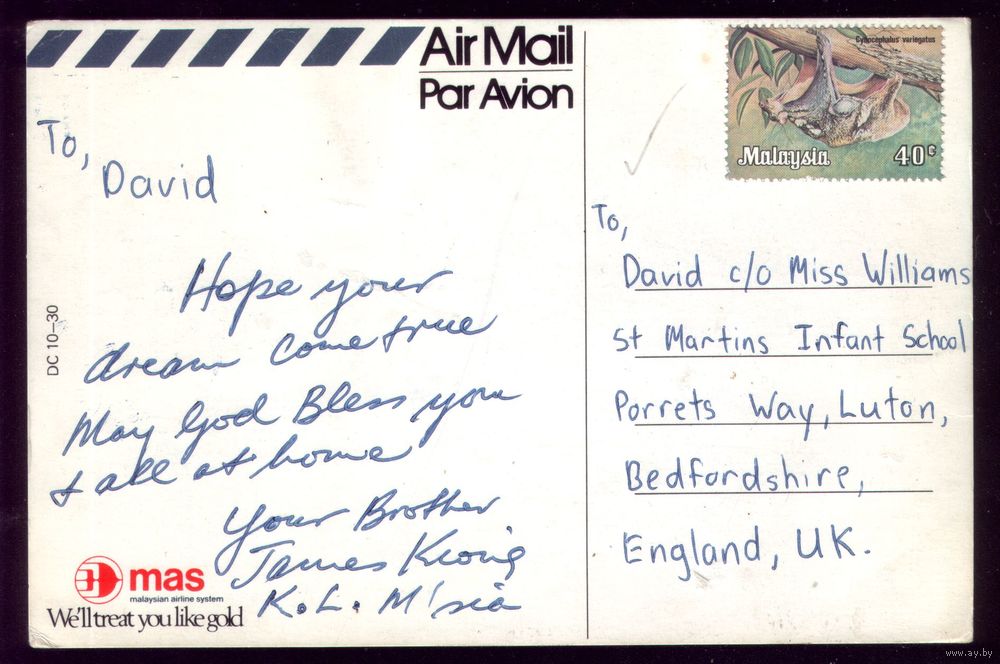 Air Mail
Par Avion
Cynocephalus variegatus
Malaysia 40c
To,
David
Hope your
dream come true
May God Bless you
& all at home
Your Brother
James Kwong
K.L. M'sia
DC 10–30
mas
malaysian airline system
We'll treat you like gold
To,
David c/o Miss Williams
St Martins Infant School
Porrets Way, Luton,
Bedfordshire,
England, UK.
www.ay.by